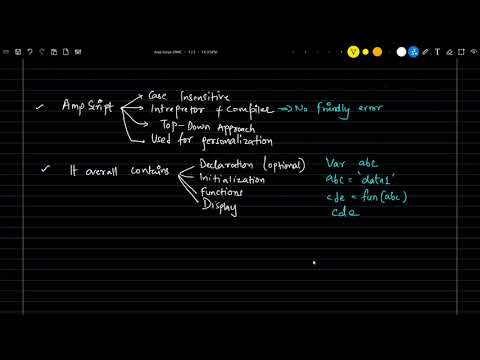 Case Insensitive
✓ AmpScript Intrepretor & compiler → No friendly error
Top-Down Approach
Used for personalization
✓ It overall contains Declaration (optional) Var abc
Initialization abc = 'data1'
Functions cde = fun(abc)
Display cde